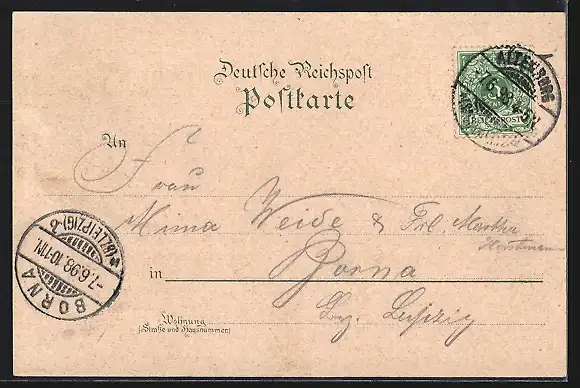 Deutsche Reichspost
Postkarte
ALTENBURG
REICHSPOST
An
Frau
Minna Weide & Frl. Martha
in Borna
Bz. Leipzig
Wohnung
(Straße und Hausnummer)
BORNA
-7.6.98.10-11V.
*(BZ.LEIPZIG)-a